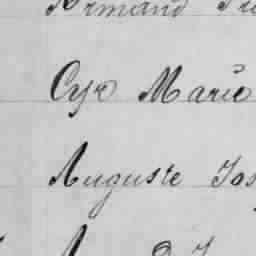 Armand
Cyr Marie
Auguste Jos